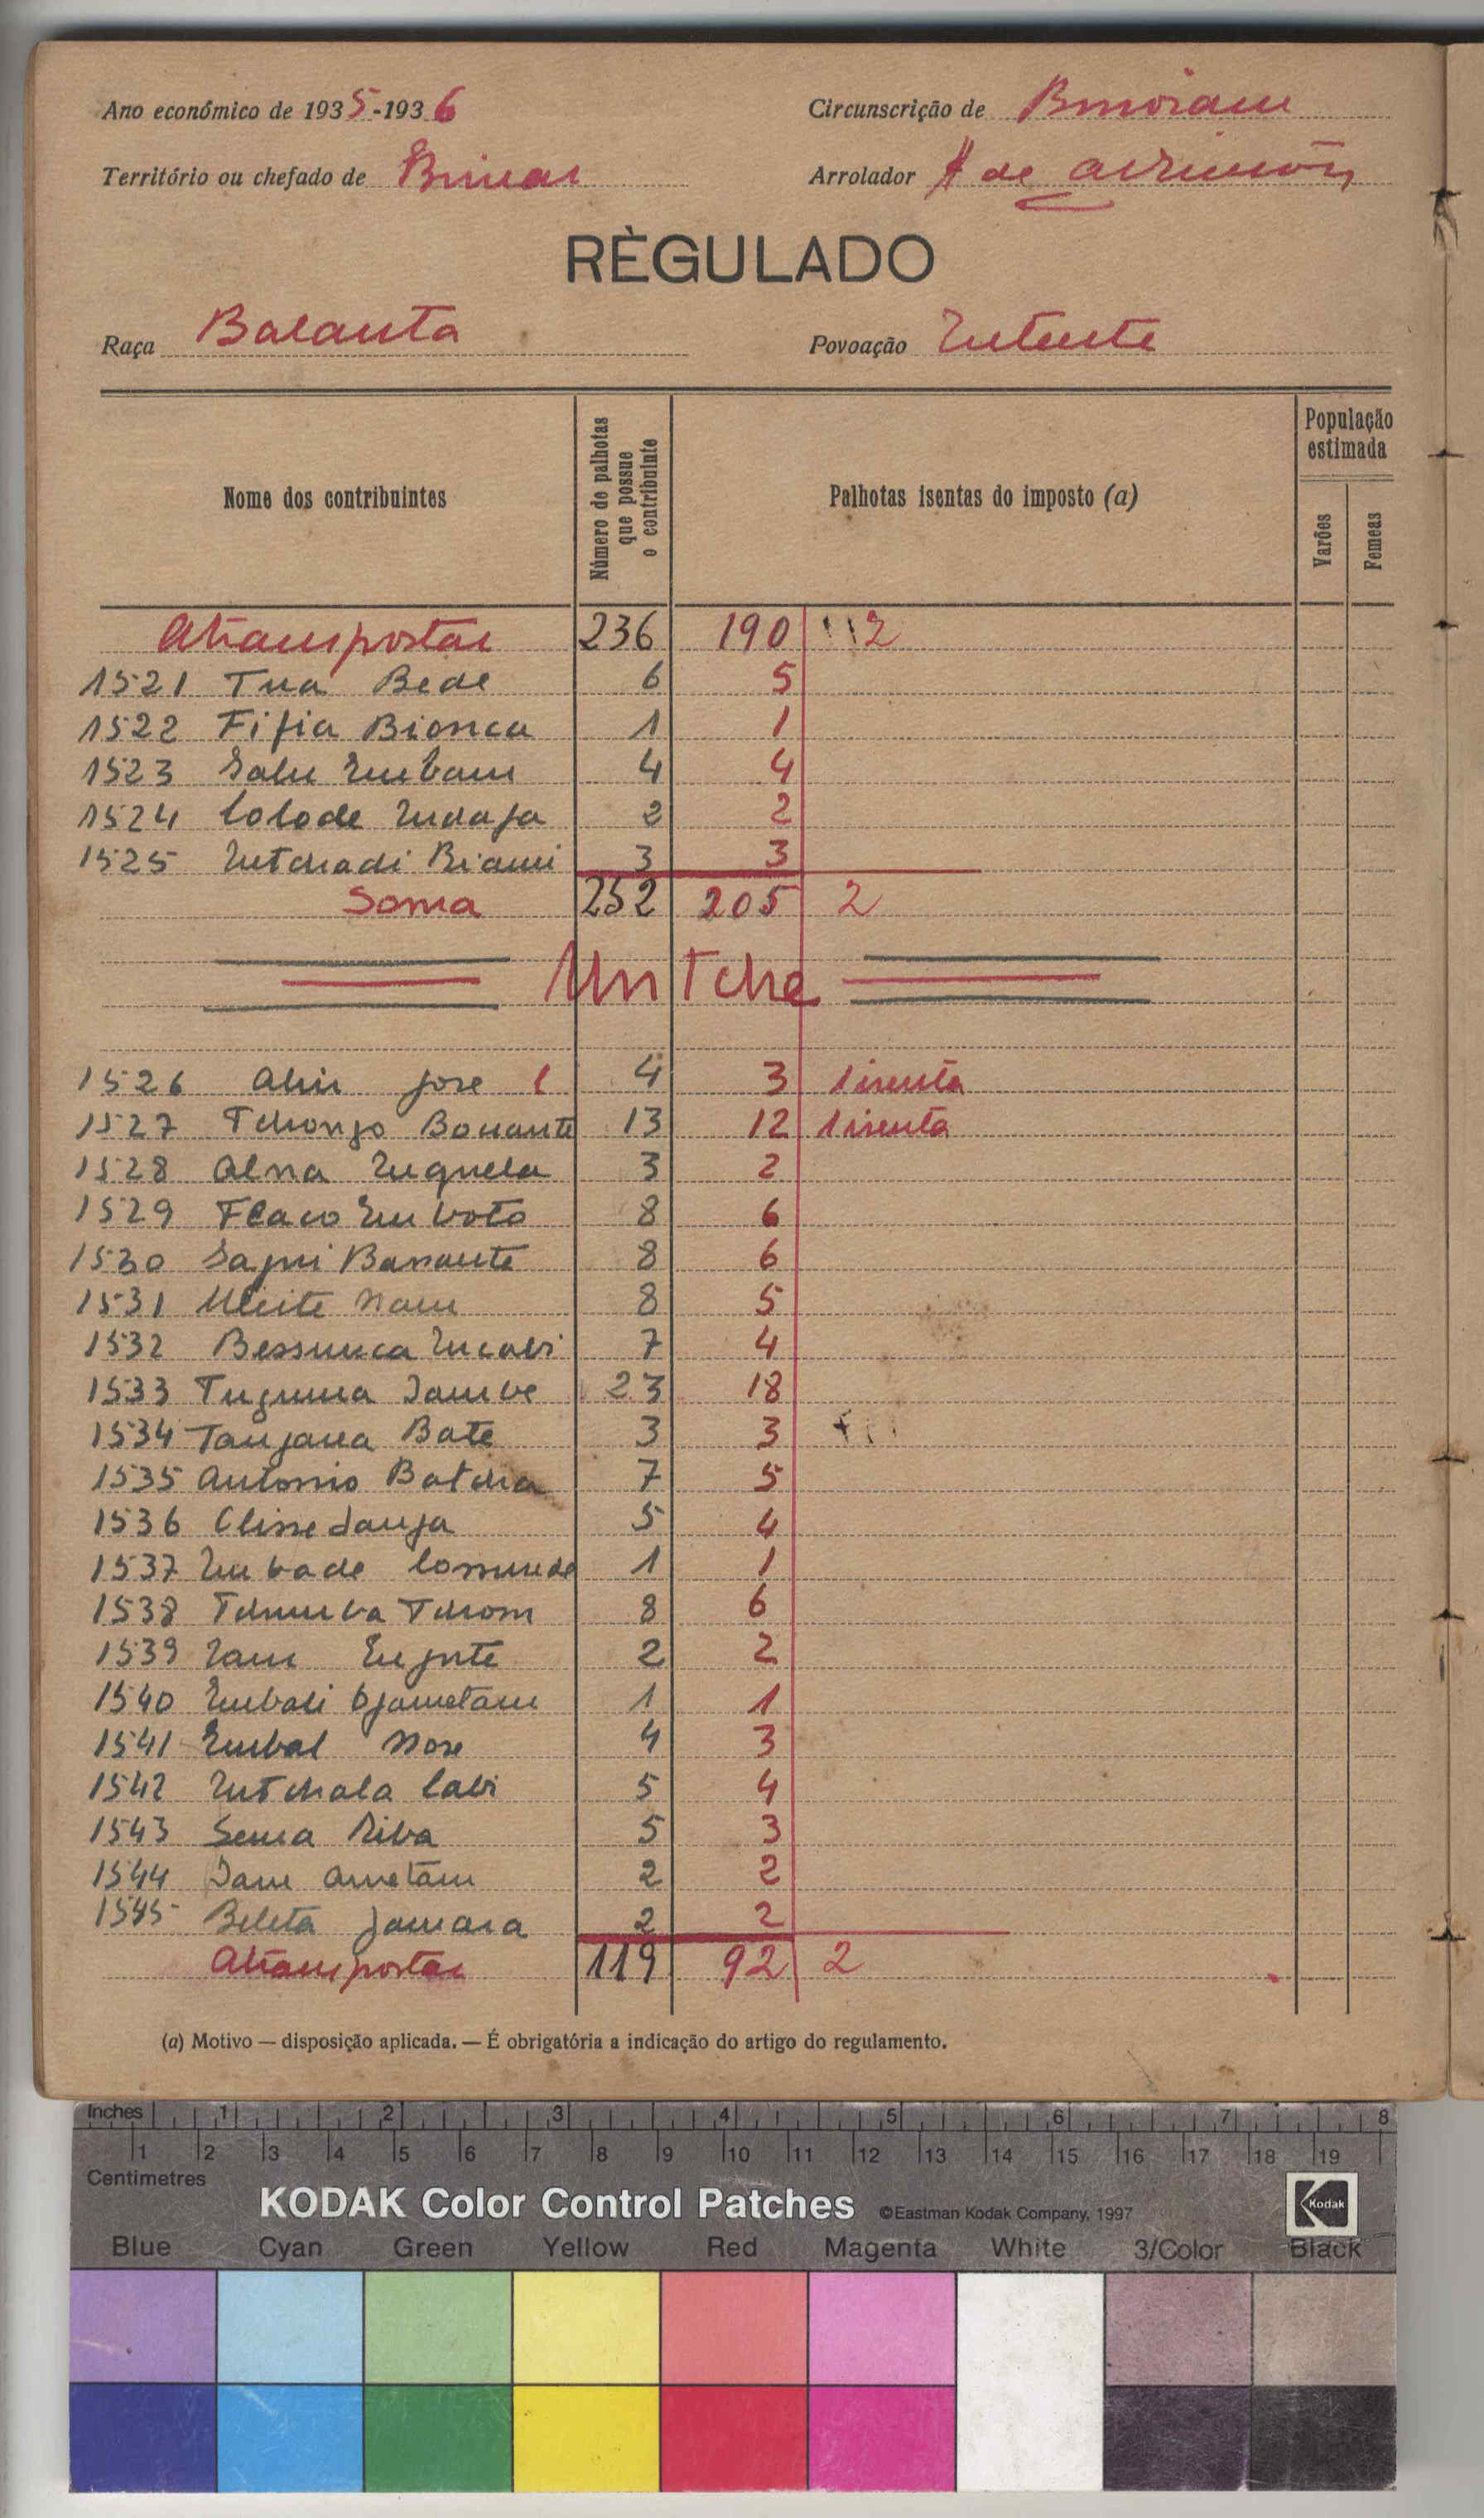 Ano económico de 1935-1936
Circunscrição de
Território ou chefado de Binar
Arrolador
RÈGULADO
Raça Balanta
Povoação Entente
Nome dos contribuintes
Número de palhotas que possue o contribuinte
Palhotas isentas do imposto (a)
População estimada
Varões
Femeas
A transportar 236 190 2
1521 Tua Bede 6 5
1522 Fifia Bionca 1 1
1523 Salu Embam 4 4
1524 Colode Endafa 2 2
1525 Entchadi Biami 3 3
Soma 252 205 2
Untche
1526 jose 4 3 1 isenta
1527 Tchongo Bonante 13 12 1 isenta
1528 Alna Enquela 3 2
1529 Flaco Emboto 8 6
1530 Banante 8 6
1531 8 5
1532 Bessunca Encabi 7 4
1533 23 18
1534 Bate 3 3
1535 Antonio Batcha 7 5
1536 5 4
1537 Embade 1 1
1538 Tchumba Tchom 8 6
1539 2 2
1540 Embali 1 1
1541 Embal 4 3
1542 Entchala Cabi 5 4
1543 5 3
1544 2 2
1545 2 2
A transportar 119 92 2
(a) Motivo — disposição aplicada. — É obrigatória a indicação do artigo do regulamento.
Inches 1 2 3 4 5 6 7 8
1 2 3 4 5 6 7 8 9 10 11 12 13 14 15 16 17 18 19
Centimetres
KODAK Color Control Patches ©Eastman Kodak Company, 1997
Kodak
Blue Cyan Green Yellow Red Magenta White 3/Color Black